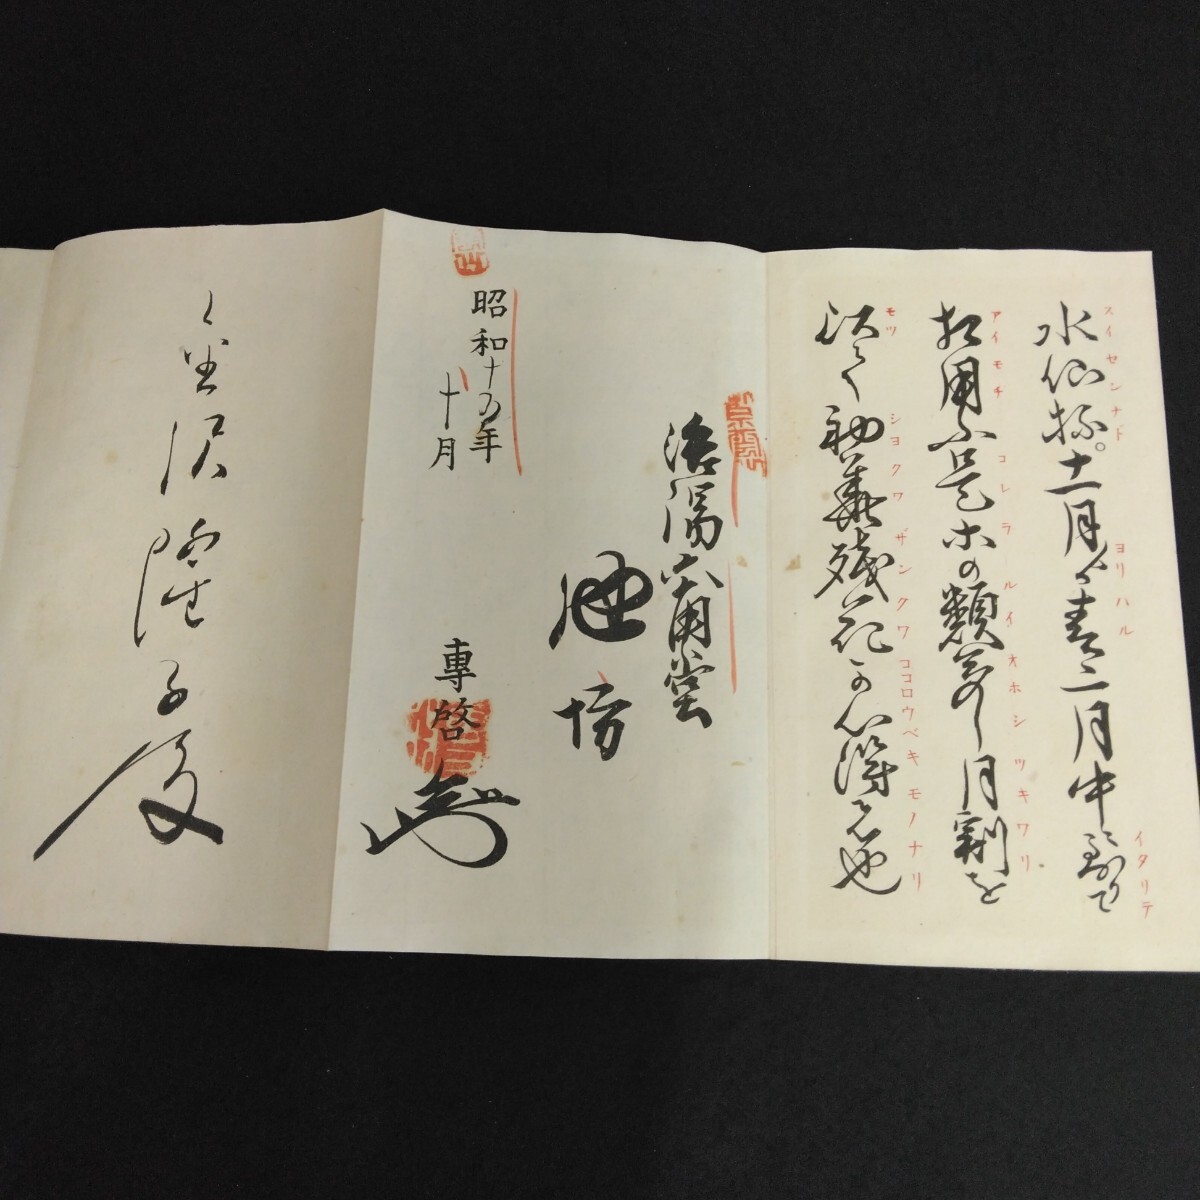 スイセンナド ヨリハル イタリテ
水仙抔。十一月ゟ春二月中到りて
アイモチ コレラ ルイオホシツキワリ
相用ふ是等の類多し月割を
モツ シヨクワザンクワココロウベキモノナリ
以て初華残花可心得者也
洛陽六角堂
池坊
昭和十五年
十月
專啓
金沢 子殿